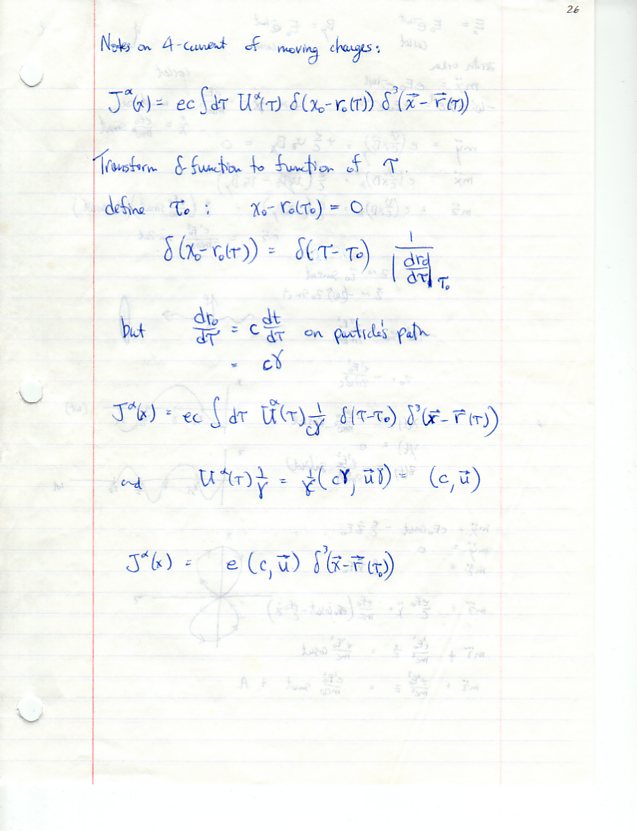 26
Notes on 4-current of moving charges:
J^α(x) = ec ∫dτ U^α(τ) δ(x₀-r₀(τ)) δ³(x⃗ - r⃗(τ))
Transform δ-function to function of τ.
define τ₀ : x₀-r₀(τ₀) = 0
δ(x₀-r₀(τ)) = δ(τ-τ₀) 1/|dr₀/dτ|_τ₀
but dr₀/dτ = c dt/dτ on particle's path
= cγ
J^α(x) = ec ∫ dτ U^α(τ) 1/cγ δ(τ-τ₀) δ³(x⃗ - r⃗(τ))
and U^α(τ) 1/γ = 1/γ (cγ, u⃗γ) = (c, u⃗)
J^α(x) = e (c, u⃗) δ³(x⃗-r⃗(τ₀))